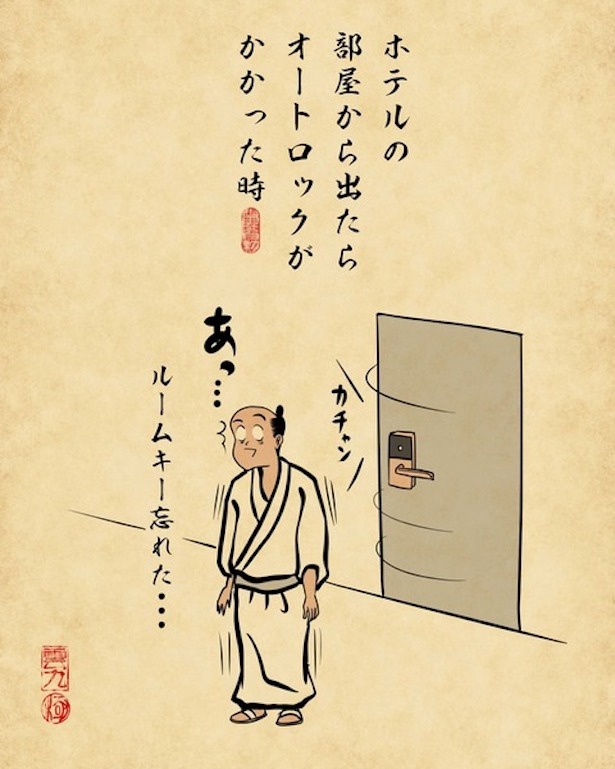 ホテルの
部屋から出たら
オートロックが
かかった時
カチャン
あっ…
ルームキー忘れた…